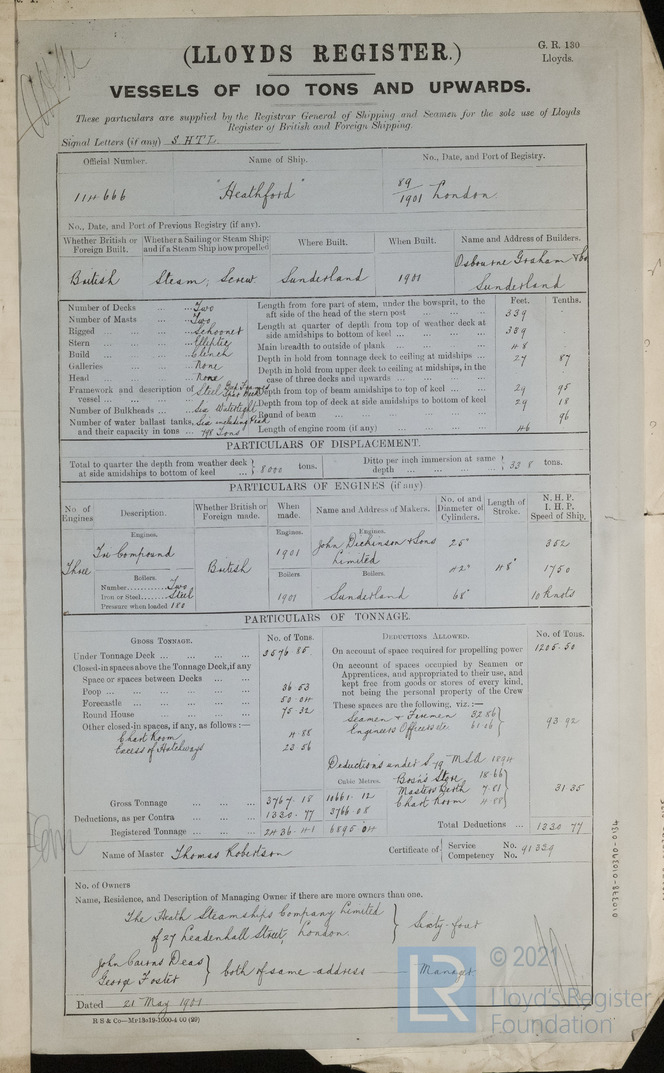 (LLOYDS REGISTER.)
G. R. 130
Lloyds.
VESSELS OF 100 TONS AND UPWARDS.
These particulars are supplied by the Registrar General of Shipping and Seamen for the sole use of Lloyds
Register of British and Foreign Shipping.
Signal Letters (if any) S H T L.
Official Number. Name of Ship. No., Date, and Port of Registry.
114666 "Heathford" 89/1901 London.
No., Date, and Port of Previous Registry (if any).
Whether British or Foreign Built. Whether a Sailing or Steam Ship; and if a Steam Ship how propelled Where Built. When Built. Name and Address of Builders.
British Steam; Screw. Sunderland 1901 Osbourne Graham & Co Sunderland
Number of Decks ... Two
Number of Masts ... Two
Rigged ... Schooner
Stern ... Elliptic
Build ... Clench
Galleries ... None
Head ... None
Framework and description of vessel ... Steel
Number of Bulkheads ... Six Watertight
Number of water ballast tanks, and their capacity in tons ... Six including Peak 798 Tons
Feet. Tenths.
Length from fore part of stem, under the bowsprit, to the aft side of the head of the stern post ... 339 .
Length at quarter of depth from top of weather deck at side amidships to bottom of keel ... 339
Main breadth to outside of plank ... 48
Depth in hold from tonnage deck to ceiling at midships ... 27 87
Depth in hold from upper deck to ceiling at midships, in the case of three decks and upwards ...
Depth from top of beam amidships to top of keel ... 29 95
Depth from top of deck at side amidships to bottom of keel 29 18
Round of beam ... 96
Length of engine room (if any) ... 46
PARTICULARS OF DISPLACEMENT.
Total to quarter the depth from weather deck at side amidships to bottom of keel ... 8000 tons.
Ditto per inch immersion at same depth ... 33 8 tons.
PARTICULARS OF ENGINES (if any).
No. of Engines Description. Whether British or Foreign made. When made. Name and Address of Makers. No. of and Diameter of Cylinders. Length of Stroke. N. H. P. I. H. P. Speed of Ship.
Engines. Engines. Engines.
Three Tri Compound British 1901 John Dickinson & Sons Limited 25" 42" 68" 48" 352 1750 10 knots
Boilers. Boilers. Boilers.
Number Two
Iron or Steel Steel 1901 Sunderland
Pressure when loaded 180
PARTICULARS OF TONNAGE.
GROSS TONNAGE. No. of Tons.
Under Tonnage Deck ... 3576 85
Closed-in spaces above the Tonnage Deck, if any
Space or spaces between Decks ...
Poop ... 36 53
Forecastle ... 50 04
Round House ... 75 32
Other closed-in spaces, if any, as follows:—
Chart Room 4 88
Excess of Hatchways 23 56
Cubic Metres.
Gross Tonnage ... 3767 18 10661 12
Deductions, as per Contra ... 1330 77 3766 08
Registered Tonnage ... 2436 41 6895 04
DEDUCTIONS ALLOWED. No. of Tons.
On account of space required for propelling power 1205.50
On account of spaces occupied by Seamen or Apprentices, and appropriated to their use, and kept free from goods or stores of every kind, not being the personal property of the Crew
These spaces are the following, viz.:—
Seamen & Firemen 32.86
Engineers Officers &c 61.06
93 92
Deductions under S 79 MSA 1894
Bosn's Store 18.66
Masters Berth 7.81
Chart Room 4 88
31.35
Total Deductions ... 1330 77
Name of Master Thomas Robertson
Certificate of Service No. Competency No. 91339
No. of Owners
Name, Residence, and Description of Managing Owner if there are more owners than one.
The Heath Steamships Company Limited
of 27 Leadenhall Street, London. } Sixty-four
John Cairns Deas
George Foster } both of same address — Manager
Dated 21 May 1901
R S & Co—
010378-010390-0134
LR
© 2021
Lloyd's Register
Foundation